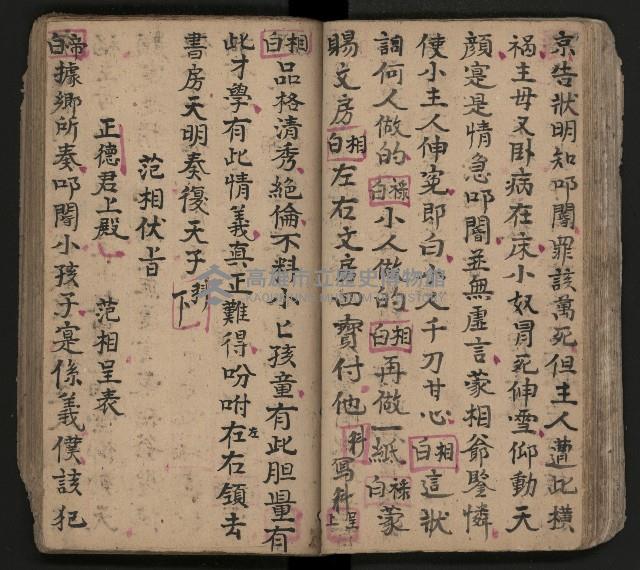 京告狀明知叩閽罪該萬死但主人遭此橫
禍主母又卧病在床小奴冒死伸雪仰動天
顏寔是情急叩閽並無虛言蒙相爺鑒憐
使小主人伸冤即白小人千刀甘心相白這狀
詞何人做的祿白小人做的相白再做一紙祿白蒙
賜文房相白左右文房四寶付他科寫科呈上
相白品格清秀絕倫不料小匕孩童有此胆量有
此才學有此情義真正難得吩咐左右領去
書房天明奏復天子科下
范相伏旨
正德君上殿 范相呈表
帝白據鄉所奏叩閽小孩子寔係義僕該犯
高雄市立歷史博物館
KAOHSIUNG MUSEUM OF HISTORY